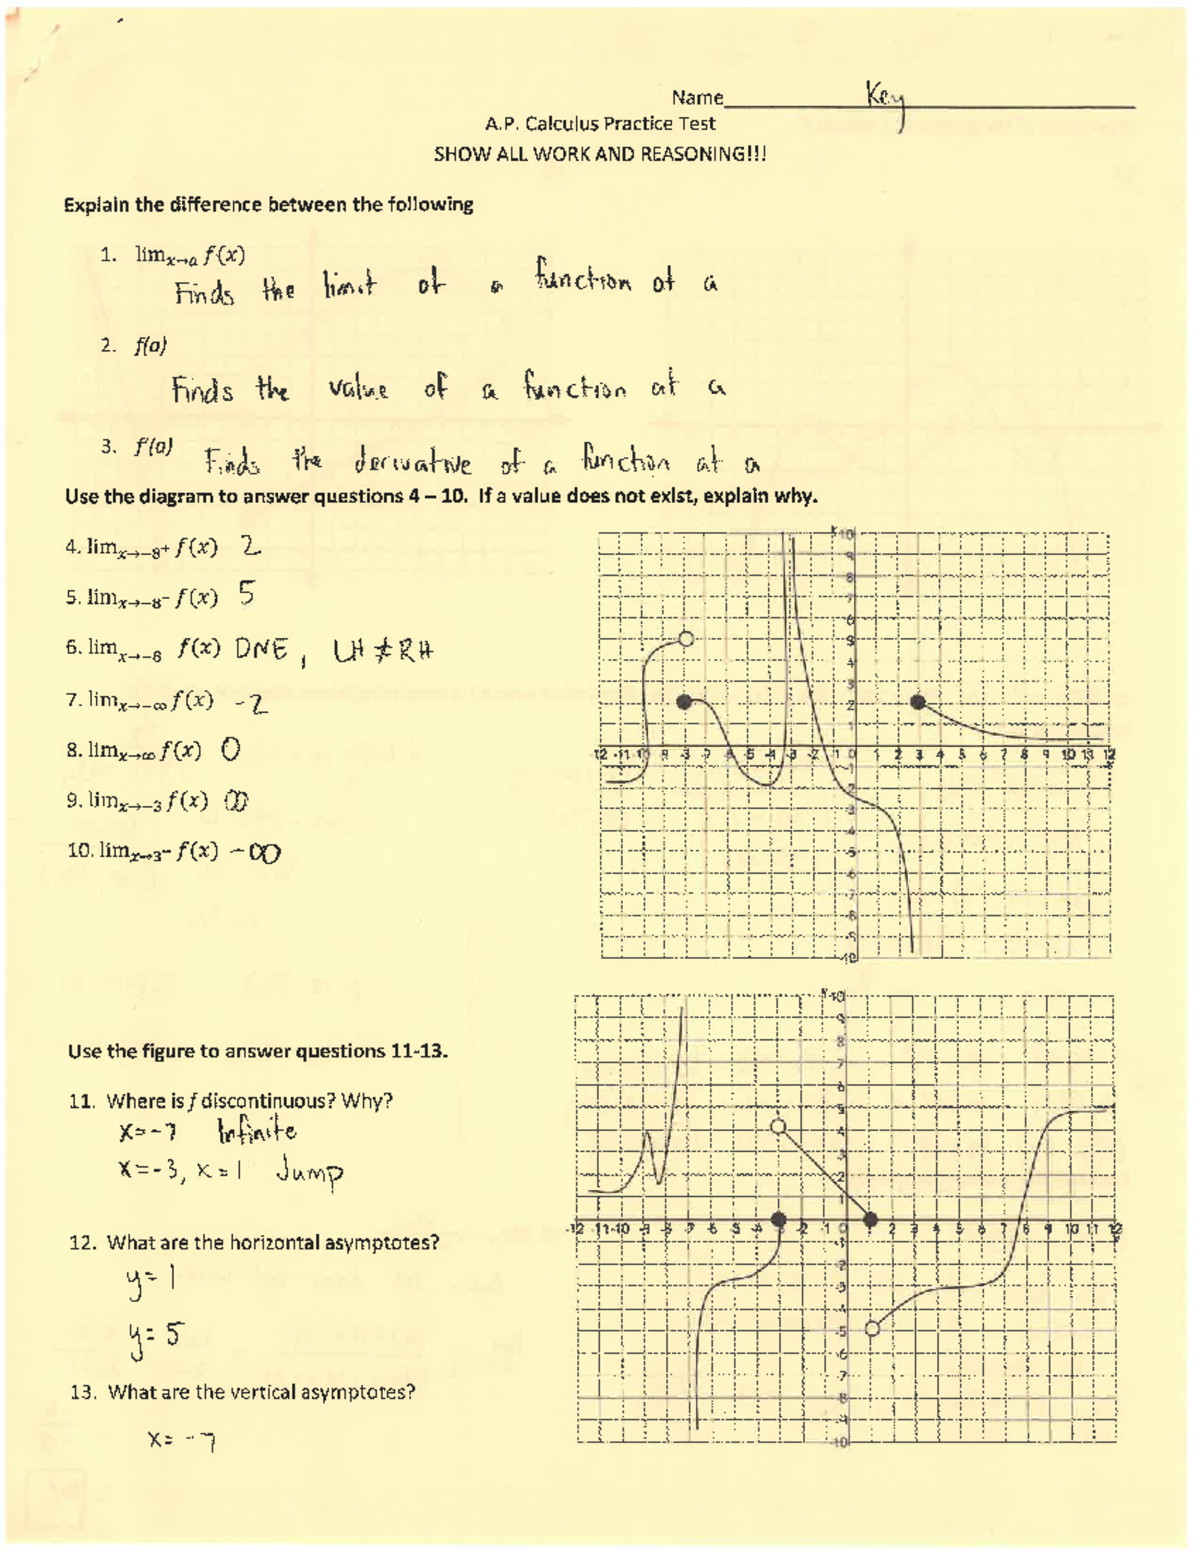 Name Key
A.P. Calculus Practice Test
SHOW ALL WORK AND REASONING!!!
Explain the difference between the following
1. lim x→a f(x)
Finds the limit of a function at a
2. f(a)
Finds the value of a function at a
3. f'(a) Finds the derivative of a function at a
Use the diagram to answer questions 4 – 10. If a value does not exist, explain why.
4. lim x→-8⁺ f(x) 2
5. lim x→-8⁻ f(x) 5
6. lim x→-8 f(x) DNE, LH ≠ RH
7. lim x→-∞ f(x) -2
8. lim x→∞ f(x) 0
9. lim x→-3 f(x) ∞
10. lim x→3⁻ f(x) -∞
Use the figure to answer questions 11-13.
11. Where is f discontinuous? Why?
x=-7 Infinite
x=-3, x=1 Jump
12. What are the horizontal asymptotes?
y=1
y=5
13. What are the vertical asymptotes?
x=-7